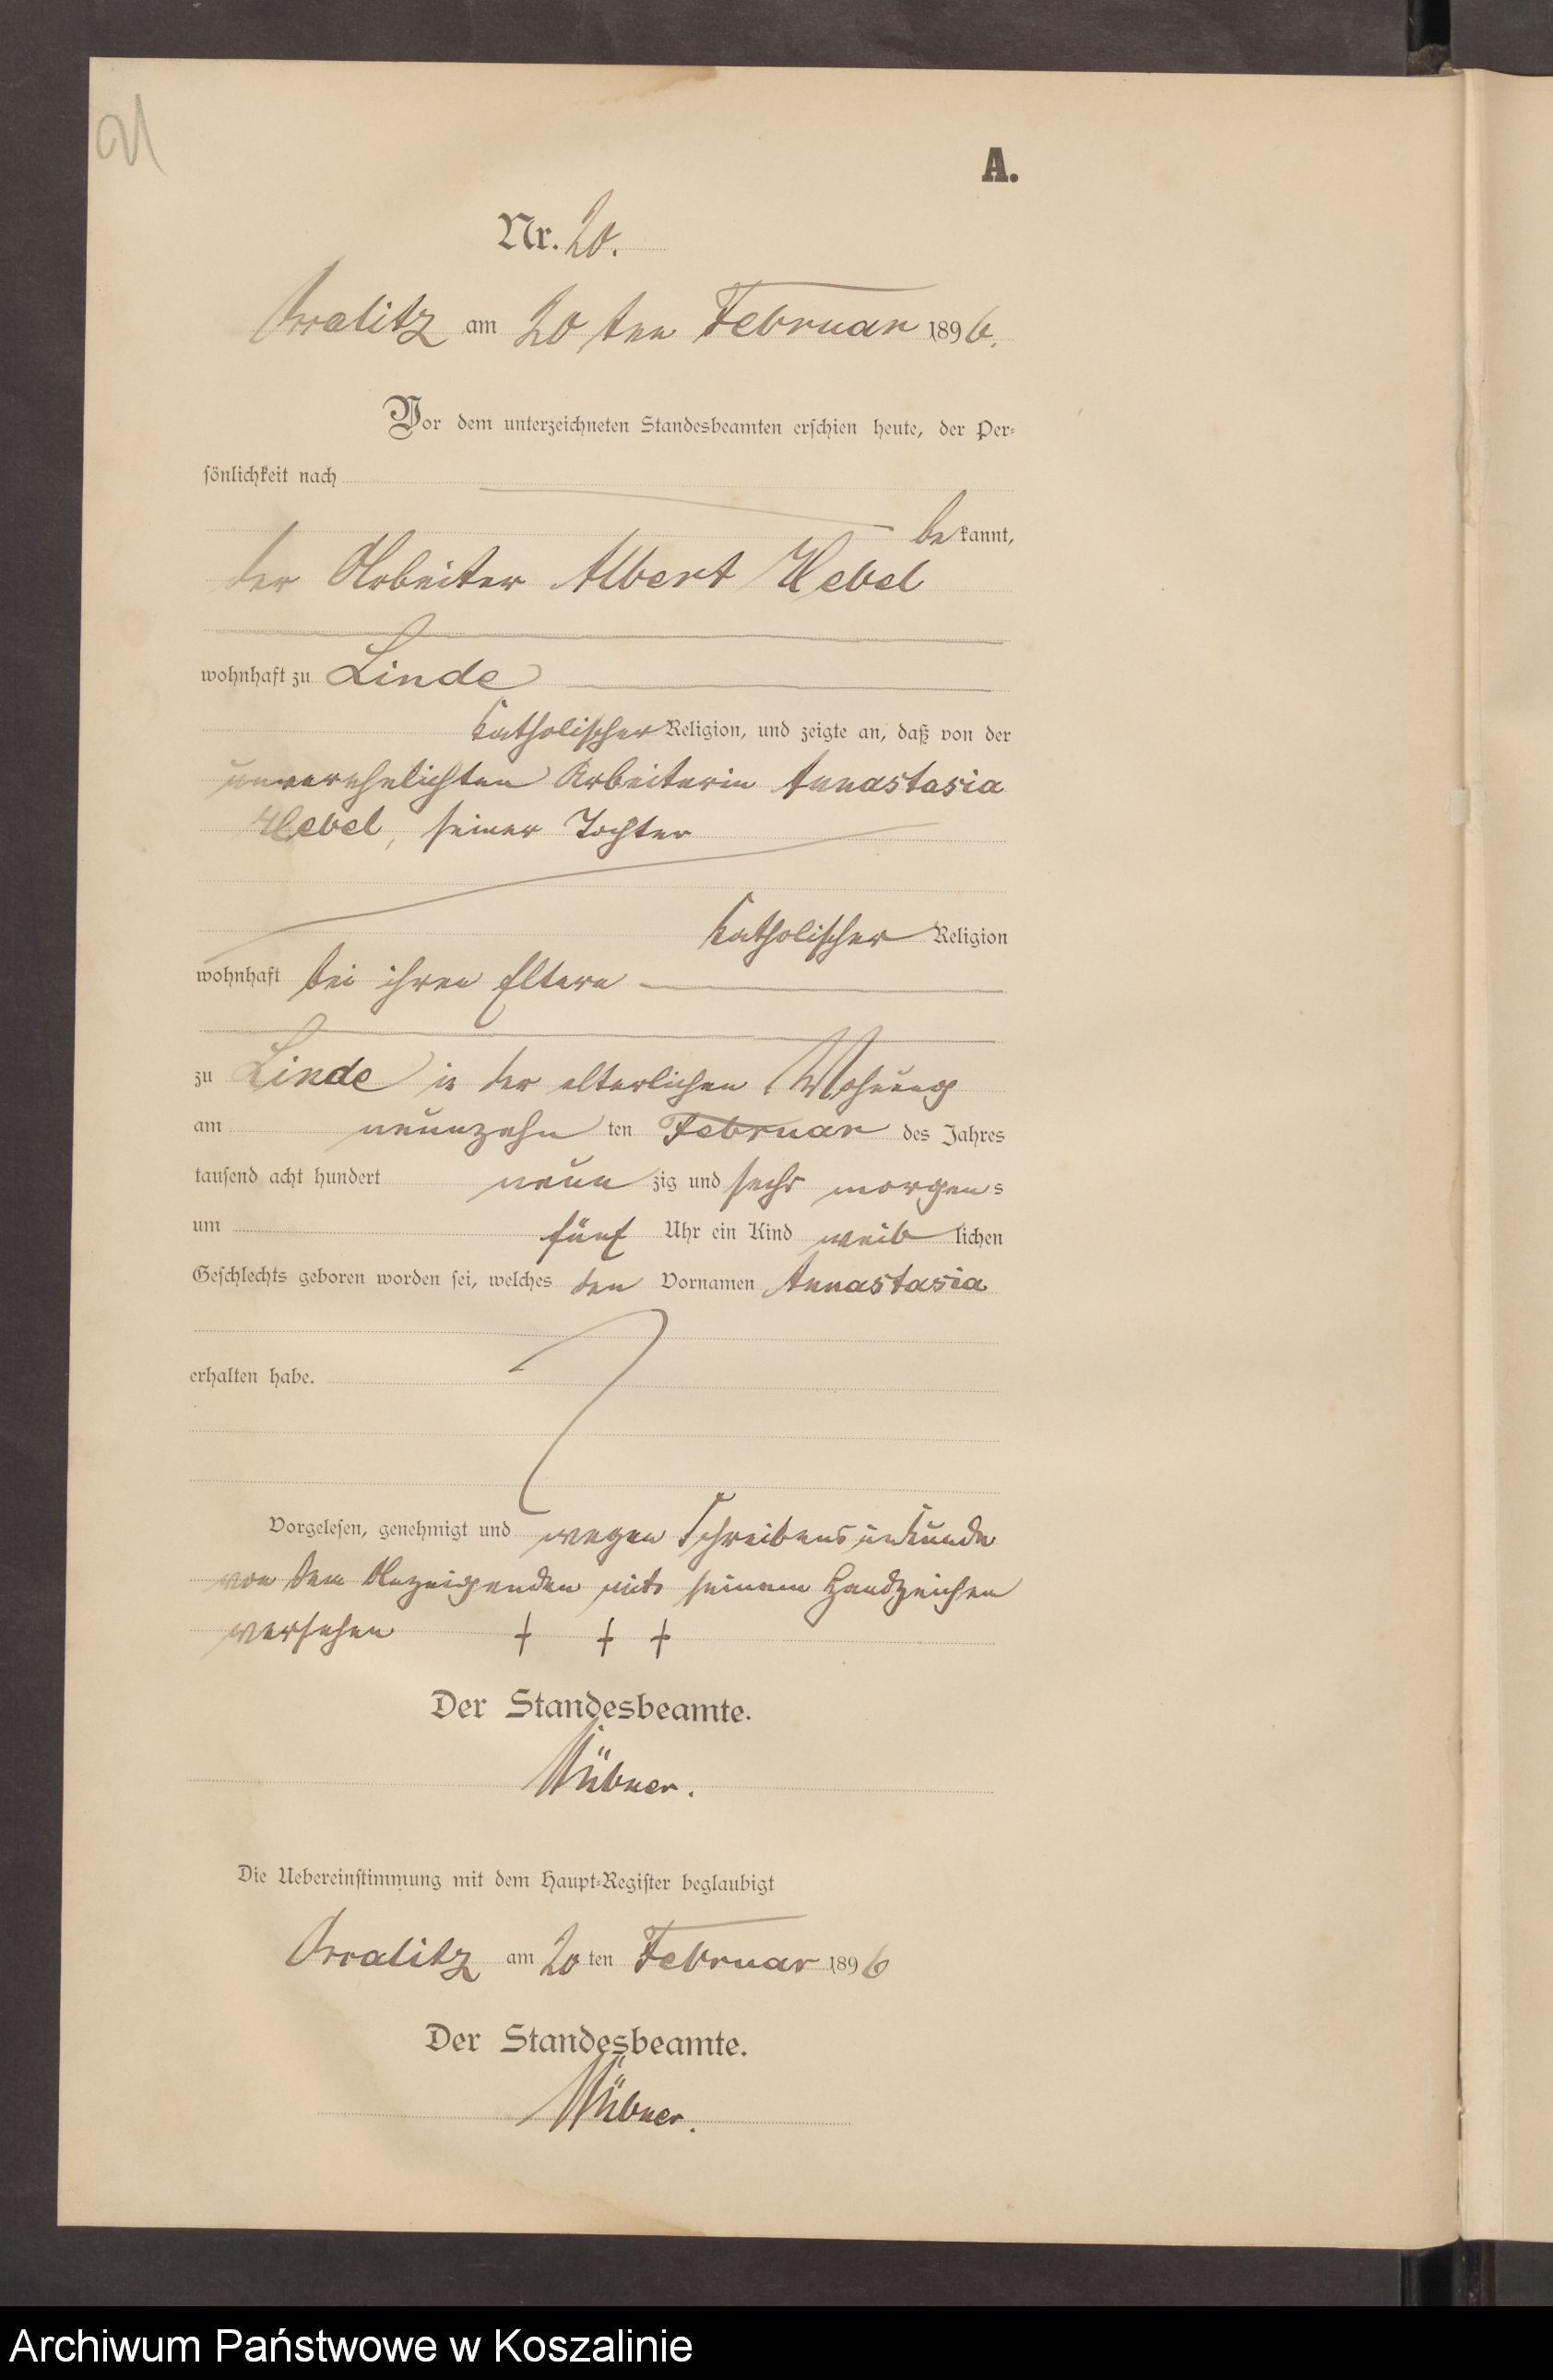 21
A.
Nr. 20.
am 20 ten Februar 1896.
Vor dem unterzeichneten Standesbeamten erschien heute, der Per-
sönlichkeit nach
bekannt,
der Arbeiter Albert Hebel
wohnhaft zu Linde
katholischer Religion, und zeigte an, daß von der
unverehelichten Arbeiterin Annastasia
Hebel, seiner Tochter
katholischer Religion
wohnhaft bei ihren Eltern
zu Linde in der elterlichen Wohnung
am neunzehn ten Februar des Jahres
tausend acht hundert neun zig und sechs morgens
um fünf Uhr ein Kind weib lichen
Geschlechts geboren worden sei, welches den Vornamen Annastasia
erhalten habe.
Vorgelesen, genehmigt und wegen Schreibensunkunde
von dem Anzeigenden mit seinem Handzeichen
versehen + + +
Der Standesbeamte.
Die Uebereinstimmung mit dem Haupt-Register beglaubigt
am 20 ten Februar 1896
Der Standesbeamte.
Archiwum Państwowe w Koszalinie